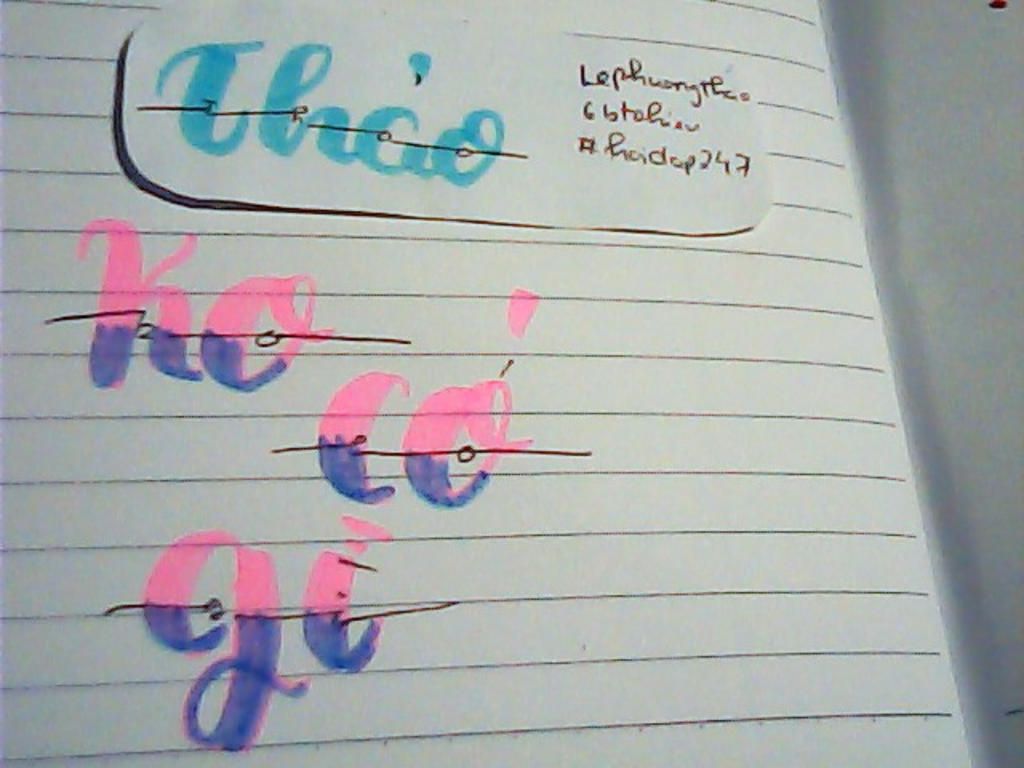 Thảo
Lephuongthao
6btohieu
#hoidap247
Ko
có
gì